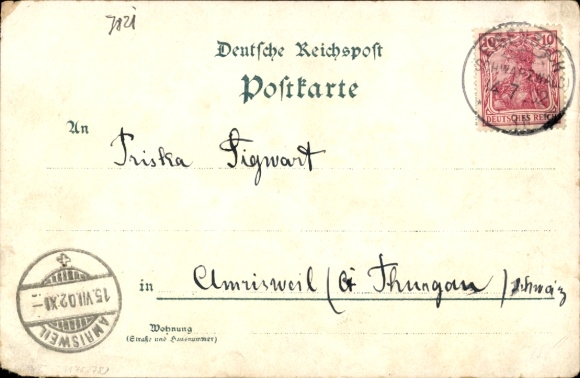 7821
Deutsche Reichspost
Postkarte
10 10
SCHWARZWALD
DEUTSCHES REICH
An
Priska Sigwart
in Amrisweil (Ct Thurgau) Schweiz
15.VII.02.XI
AMRISWEIL
Wohnung
(Straße und Hausnummer)